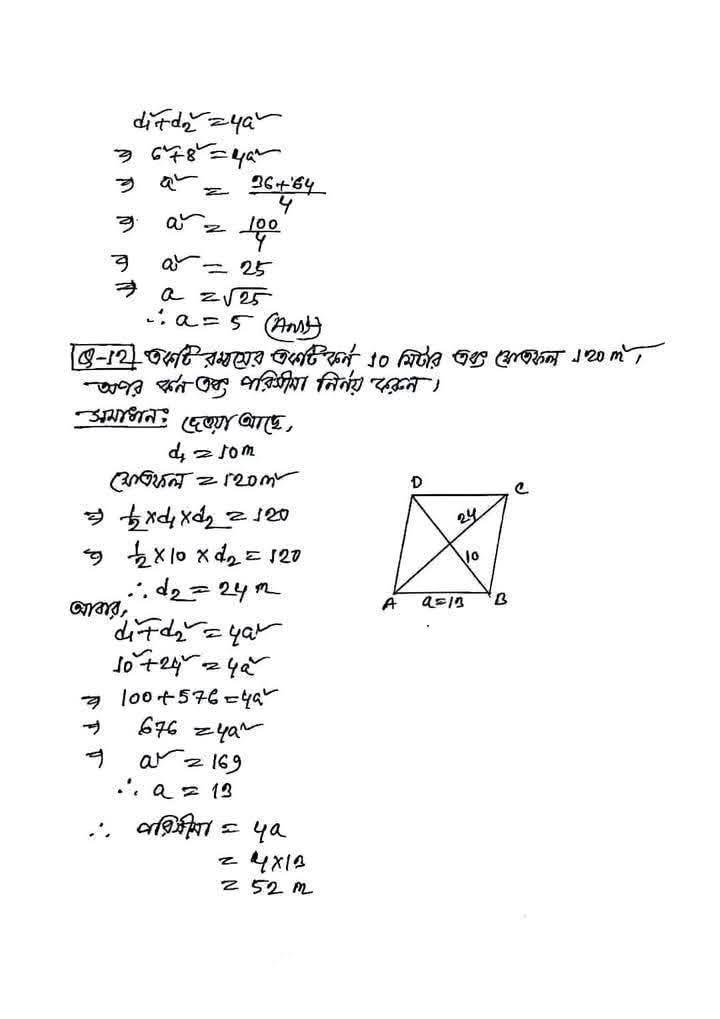 d₁² + d₂² = 4a²
⇒ 6² + 8² = 4a²
⇒ a² = (36+64)/4
⇒ a² = 100/4
⇒ a² = 25
⇒ a = √25
∴ a = 5 (Ans)
Q-12 একটি রম্বসের একটি কর্ন 10 মিটার এবং ক্ষেত্রফল 120 m²,
অপর কর্ন এবং পরিসীমা নির্নয় করুন।
সমাধান: দেওয়া আছে,
d₁ = 10 m
ক্ষেত্রফল = 120 m²
⇒ ½ × d₁ × d₂ = 120
⇒ ½ × 10 × d₂ = 120
∴ d₂ = 24 m
আবার,
d₁² + d₂² = 4a²
10² + 24² = 4a²
⇒ 100 + 576 = 4a²
⇒ 676 = 4a²
⇒ a² = 169
∴ a = 13
∴ পরিসীমা = 4a
= 4 × 13
= 52 m
D C
24
10
A a = 13 B